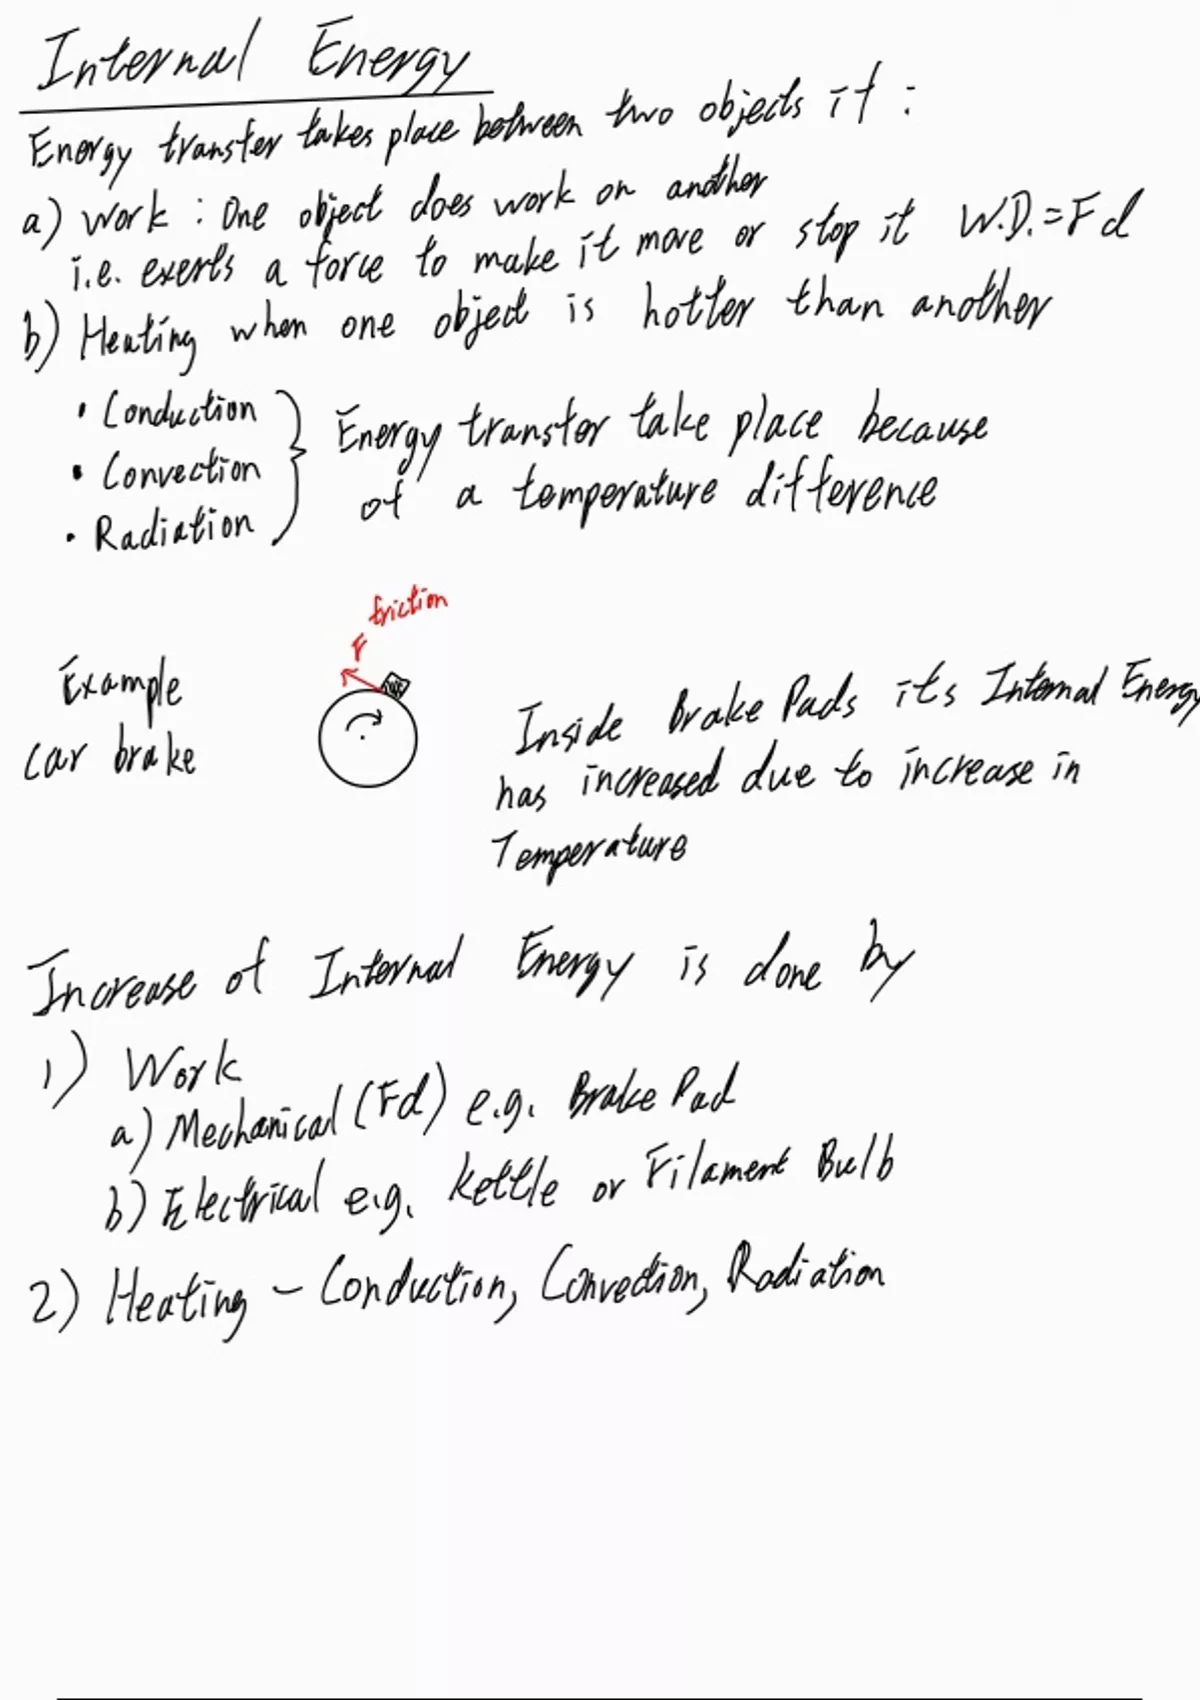 Internal Energy
Energy transfer takes place between two objects if :
a) Work : One object does work on another
i.e. exerts a force to make it move or stop it W.D.=Fd
b) Heating when one object is hotter than another
• Conduction
• Convection
• Radiation
Energy transfer take place because
of a temperature difference
friction
F
Example
car brake
Inside Brake Pads its Internal Energy
has increased due to increase in
Temperature
Increase of Internal Energy is done by
1) Work
a) Mechanical (Fd) e.g. Brake Pad
b) Electrical e.g. kettle or Filament Bulb
2) Heating – Conduction, Convection, Radiation